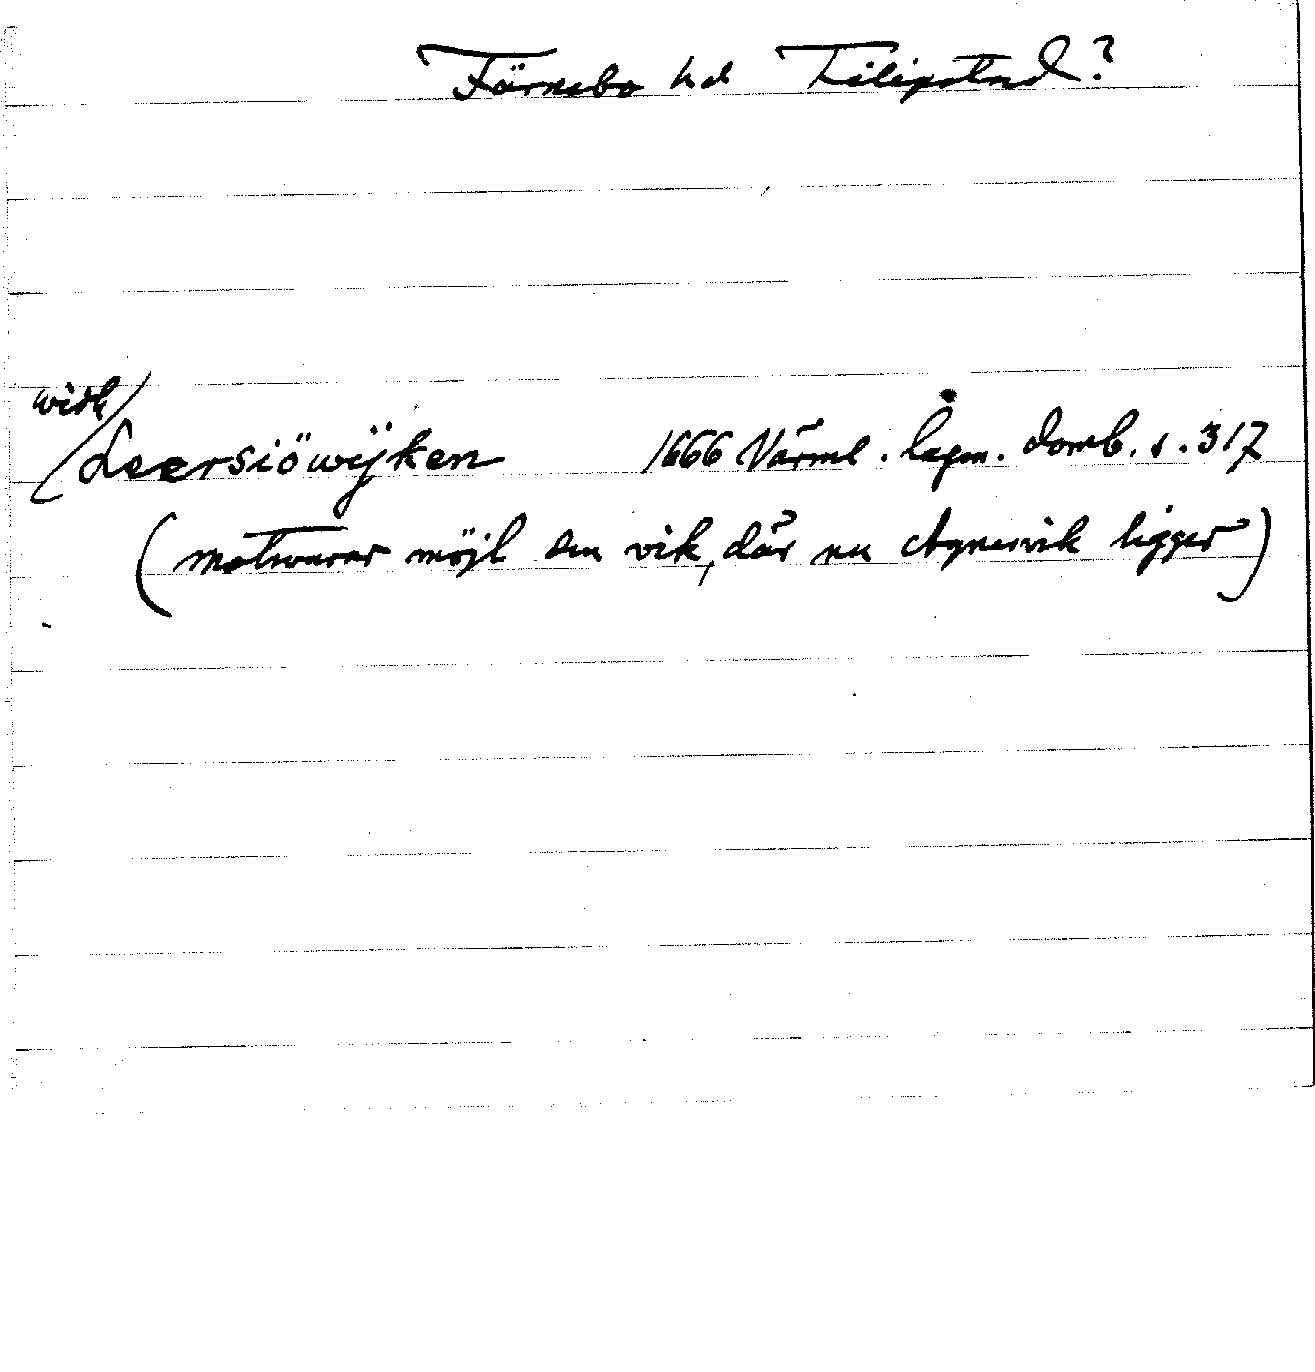 Färnebo hd Filipstad?
widh/
Leersiöwijken 1666 Värml. lagm. domb. s. 317
(motsvarar möjl den vik, där nu Agnesvik ligger)